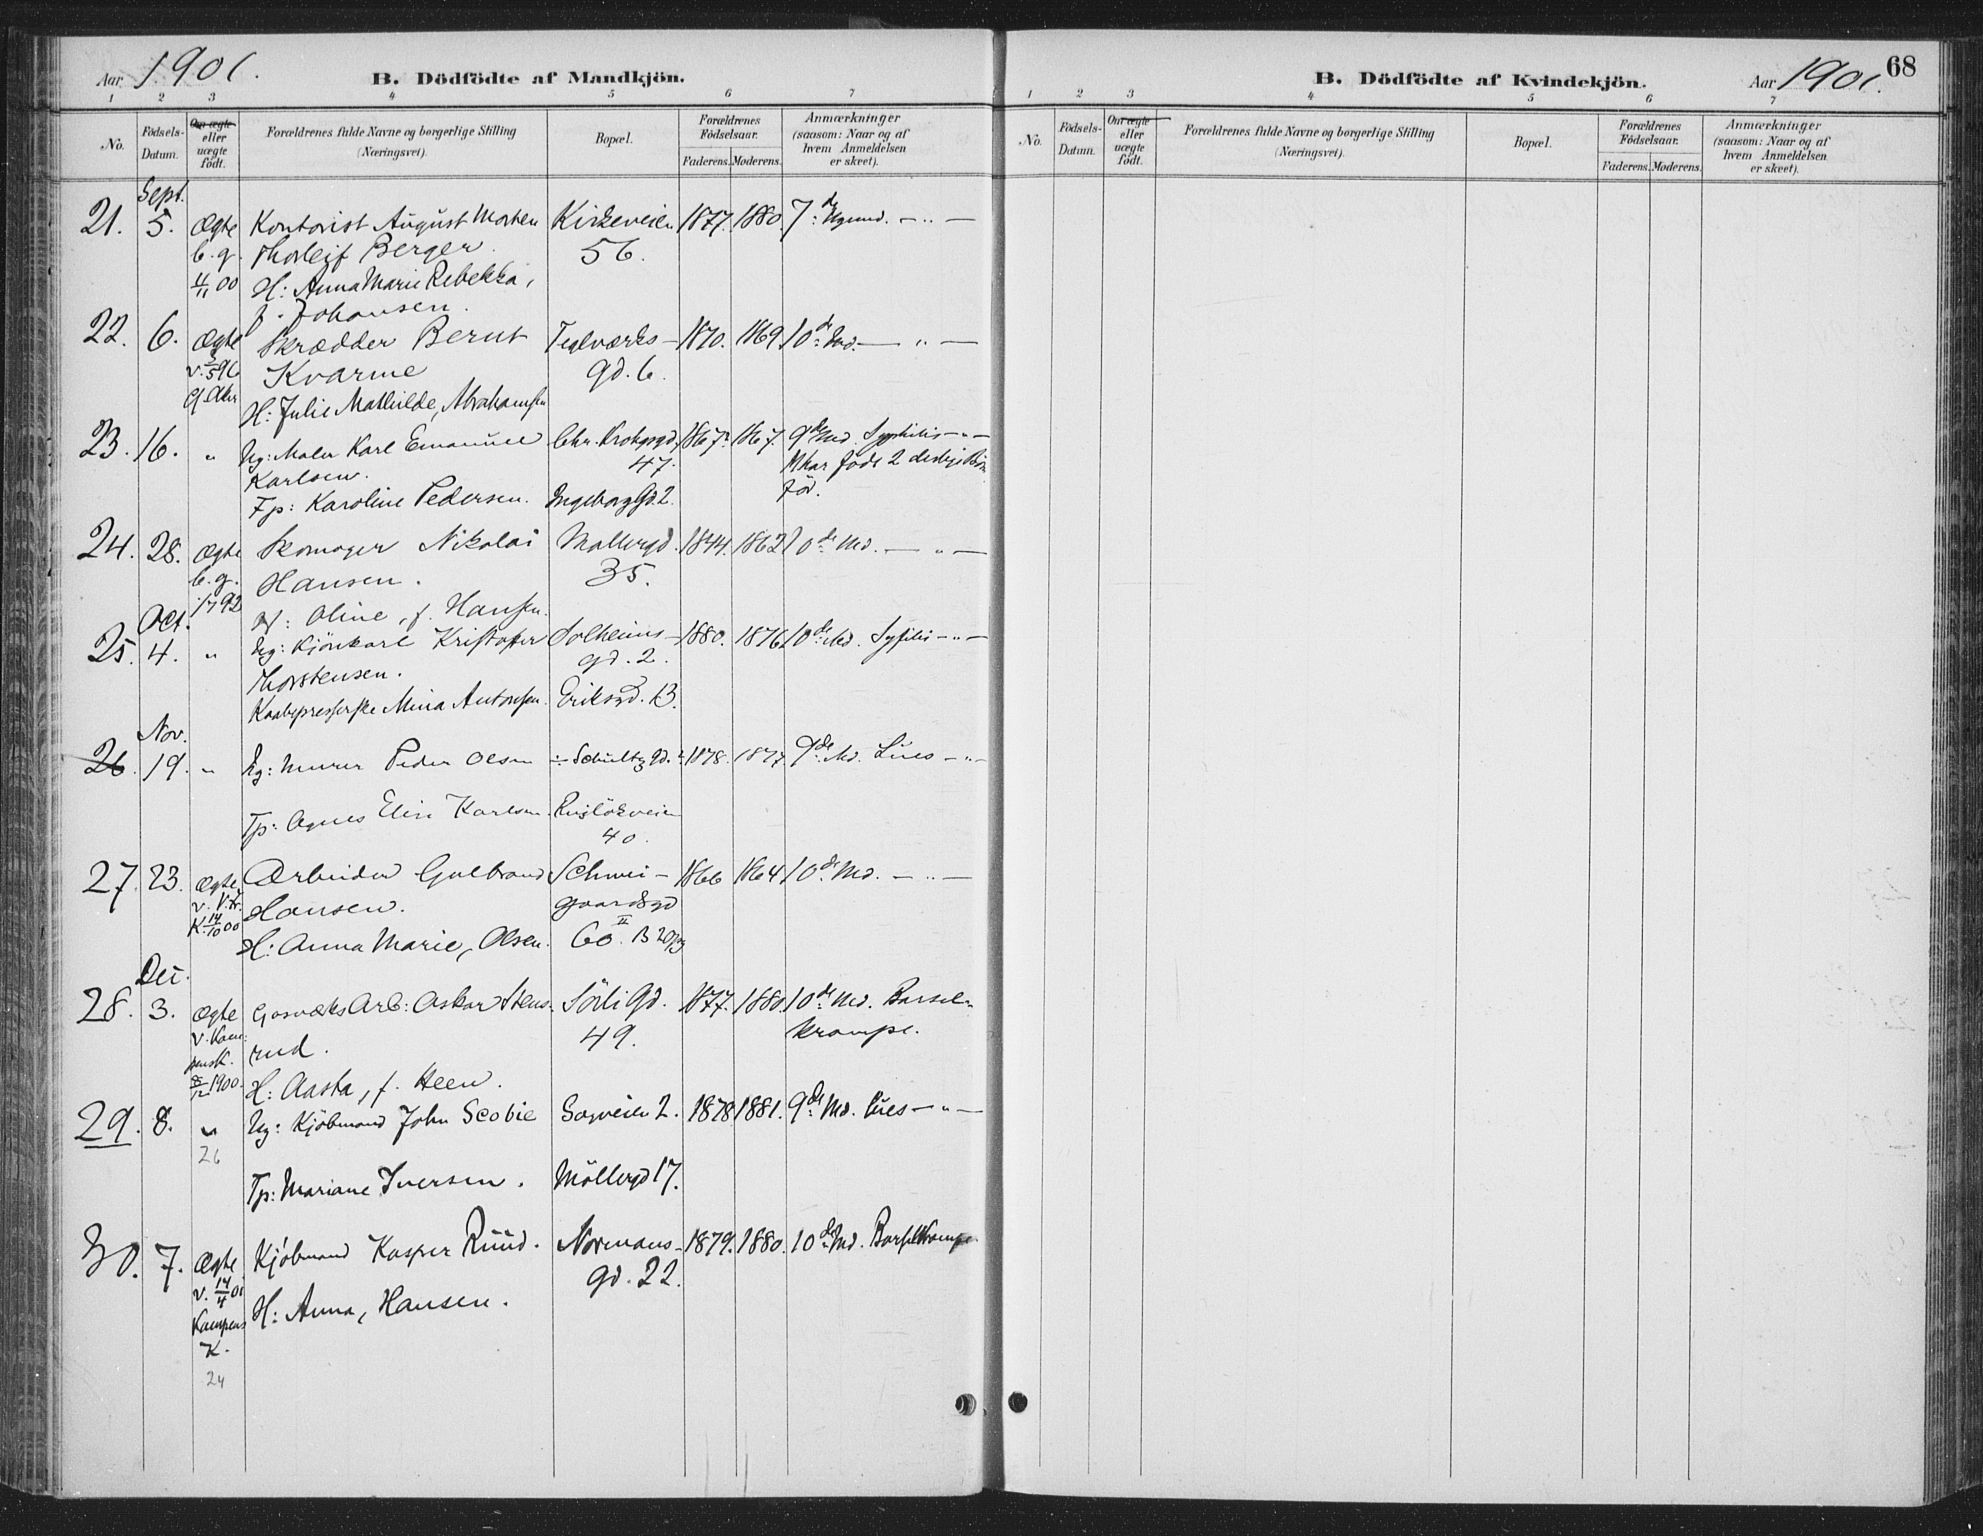 Aar 1901.
B. Dödfödte af Mandkjön.
1 2 3 4 5 6 7
No.
Födsels-Datum.
Om ægte eller uægte födt.
Forældrenes fulde Navne og borgerlige Stilling (Næringsvei).
Bopæl.
Forældrenes Födselsaar.
Faderens. Moderens.
Anmærkninger (saasom: Naar og af hvem Anmeldelsen er skeet).
Sept.
21. 5. Ægte Kontorist August Morten Kirkeveien 1877. 1880. 7de
b. g. Thorleif Berger 56.
4/11 00 H: Anna Marie Rebekka,
f. Johansen.
22. 6. Ægte Skrædder Bernt Teglværks- 1870. 1869. 10de Md. — " —
v. 3/5 96 Kvarme gd. 6.
H: Julie Mathilde, Abrahamsen
23. 16. " Ug: Maler Karl Emanuel Chr. Krohgsgd. 1867. 1867. 9de Md. Syphilis — " —
Karlsen. 47. M har födt 2
Fp: Karoline Pedersen. Ingeborg Gd. 2. för.
24. 28. Ægte Skomager Nikolai Mollergd. 1844. 1862. 10de Md. — " —
b. g. Hansen. 35.
H: Oline, f. Hansen.
Oct.
25. 4. " Ug: Kjörekarl Kristofer Solheims- 1880. 1876. 10de Md. Syfilis — " —
Thorstensen. gd. 2.
Kaabepresserske Mina Antonsen. Eriksgd. 13.
Nov.
26. 19. " Ug: Murer Peder Olsen Schultz Gd. 1878. 1877. 9de Md. Lues — " —
Fp: Agnes Elise Karlsen. Ruslökveien
40.
27. 23. Ægte Arbeider Gulbrand Schwei- 1866 1864 10de Md. — " —
Hansen. gaardsgd
K. 14/10 00 H: Anna Marie, Olsen. 60. II
Dec.
28. 3. Ægte Gasværks Arb: Oskar Stens- Sörli Gd. 1877. 1880. 10de Md. Barsel-
rud. 49. krampe.
1900. H: Aasta, f. Heen.
29. 8. " Ug: Kjöbmand John Scobie Sagveien 2. 1878 1881. 9de Md. Lues — " —
26
Fp: Mariane Iversen. Möllergd 17.
30. 7. Ægte Kjöbmand Kasper Ruud. Normans- 1879. 1880. 10de Md. Barselkrampe
v. 14/4 01 H: Anna, Hansen. gd. 22.
Kampens
K.
24
68
B. Dödfödte af Kvindekjön.
Aar 1901.
1 2 3 4 5 6 7
No.
Födsels-Datum.
Om ægte eller uægte födt.
Forældrenes fulde Navne og borgerlige Stilling (Næringsvei).
Bopæl.
Forældrenes Födselsaar.
Faderens. Moderens.
Anmærkninger (saasom: Naar og af hvem Anmeldelsen er skeet).